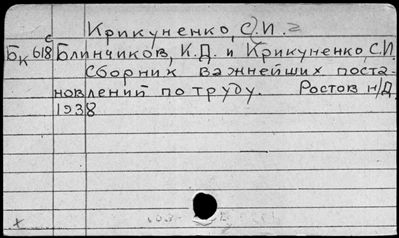 Крикуненко, С.И.
с
Бк 618 Блинчиков, К.Д. и Крикуненко, С.И.
Сборник важнейших поста-
новлений по труду. Ростов н/Д
1938
x